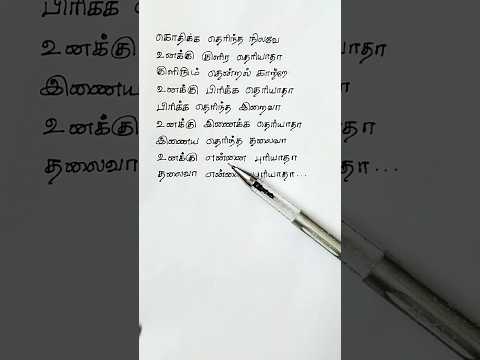 கொதிக்க தெரிந்த நிலவே
உனக்கு குளிர தெரியாதா
குளிரும் தென்றல் காற்றே
உனக்கு பிரிக்க தெரியாதா
பிரிக்க தெரிந்த இறைவா
உனக்கு இணைக்க தெரியாதா
இணைய தெரிந்த தலைவா
உனக்கு என்னை புரியாதா
தலைவா என்னை புரியாதா...